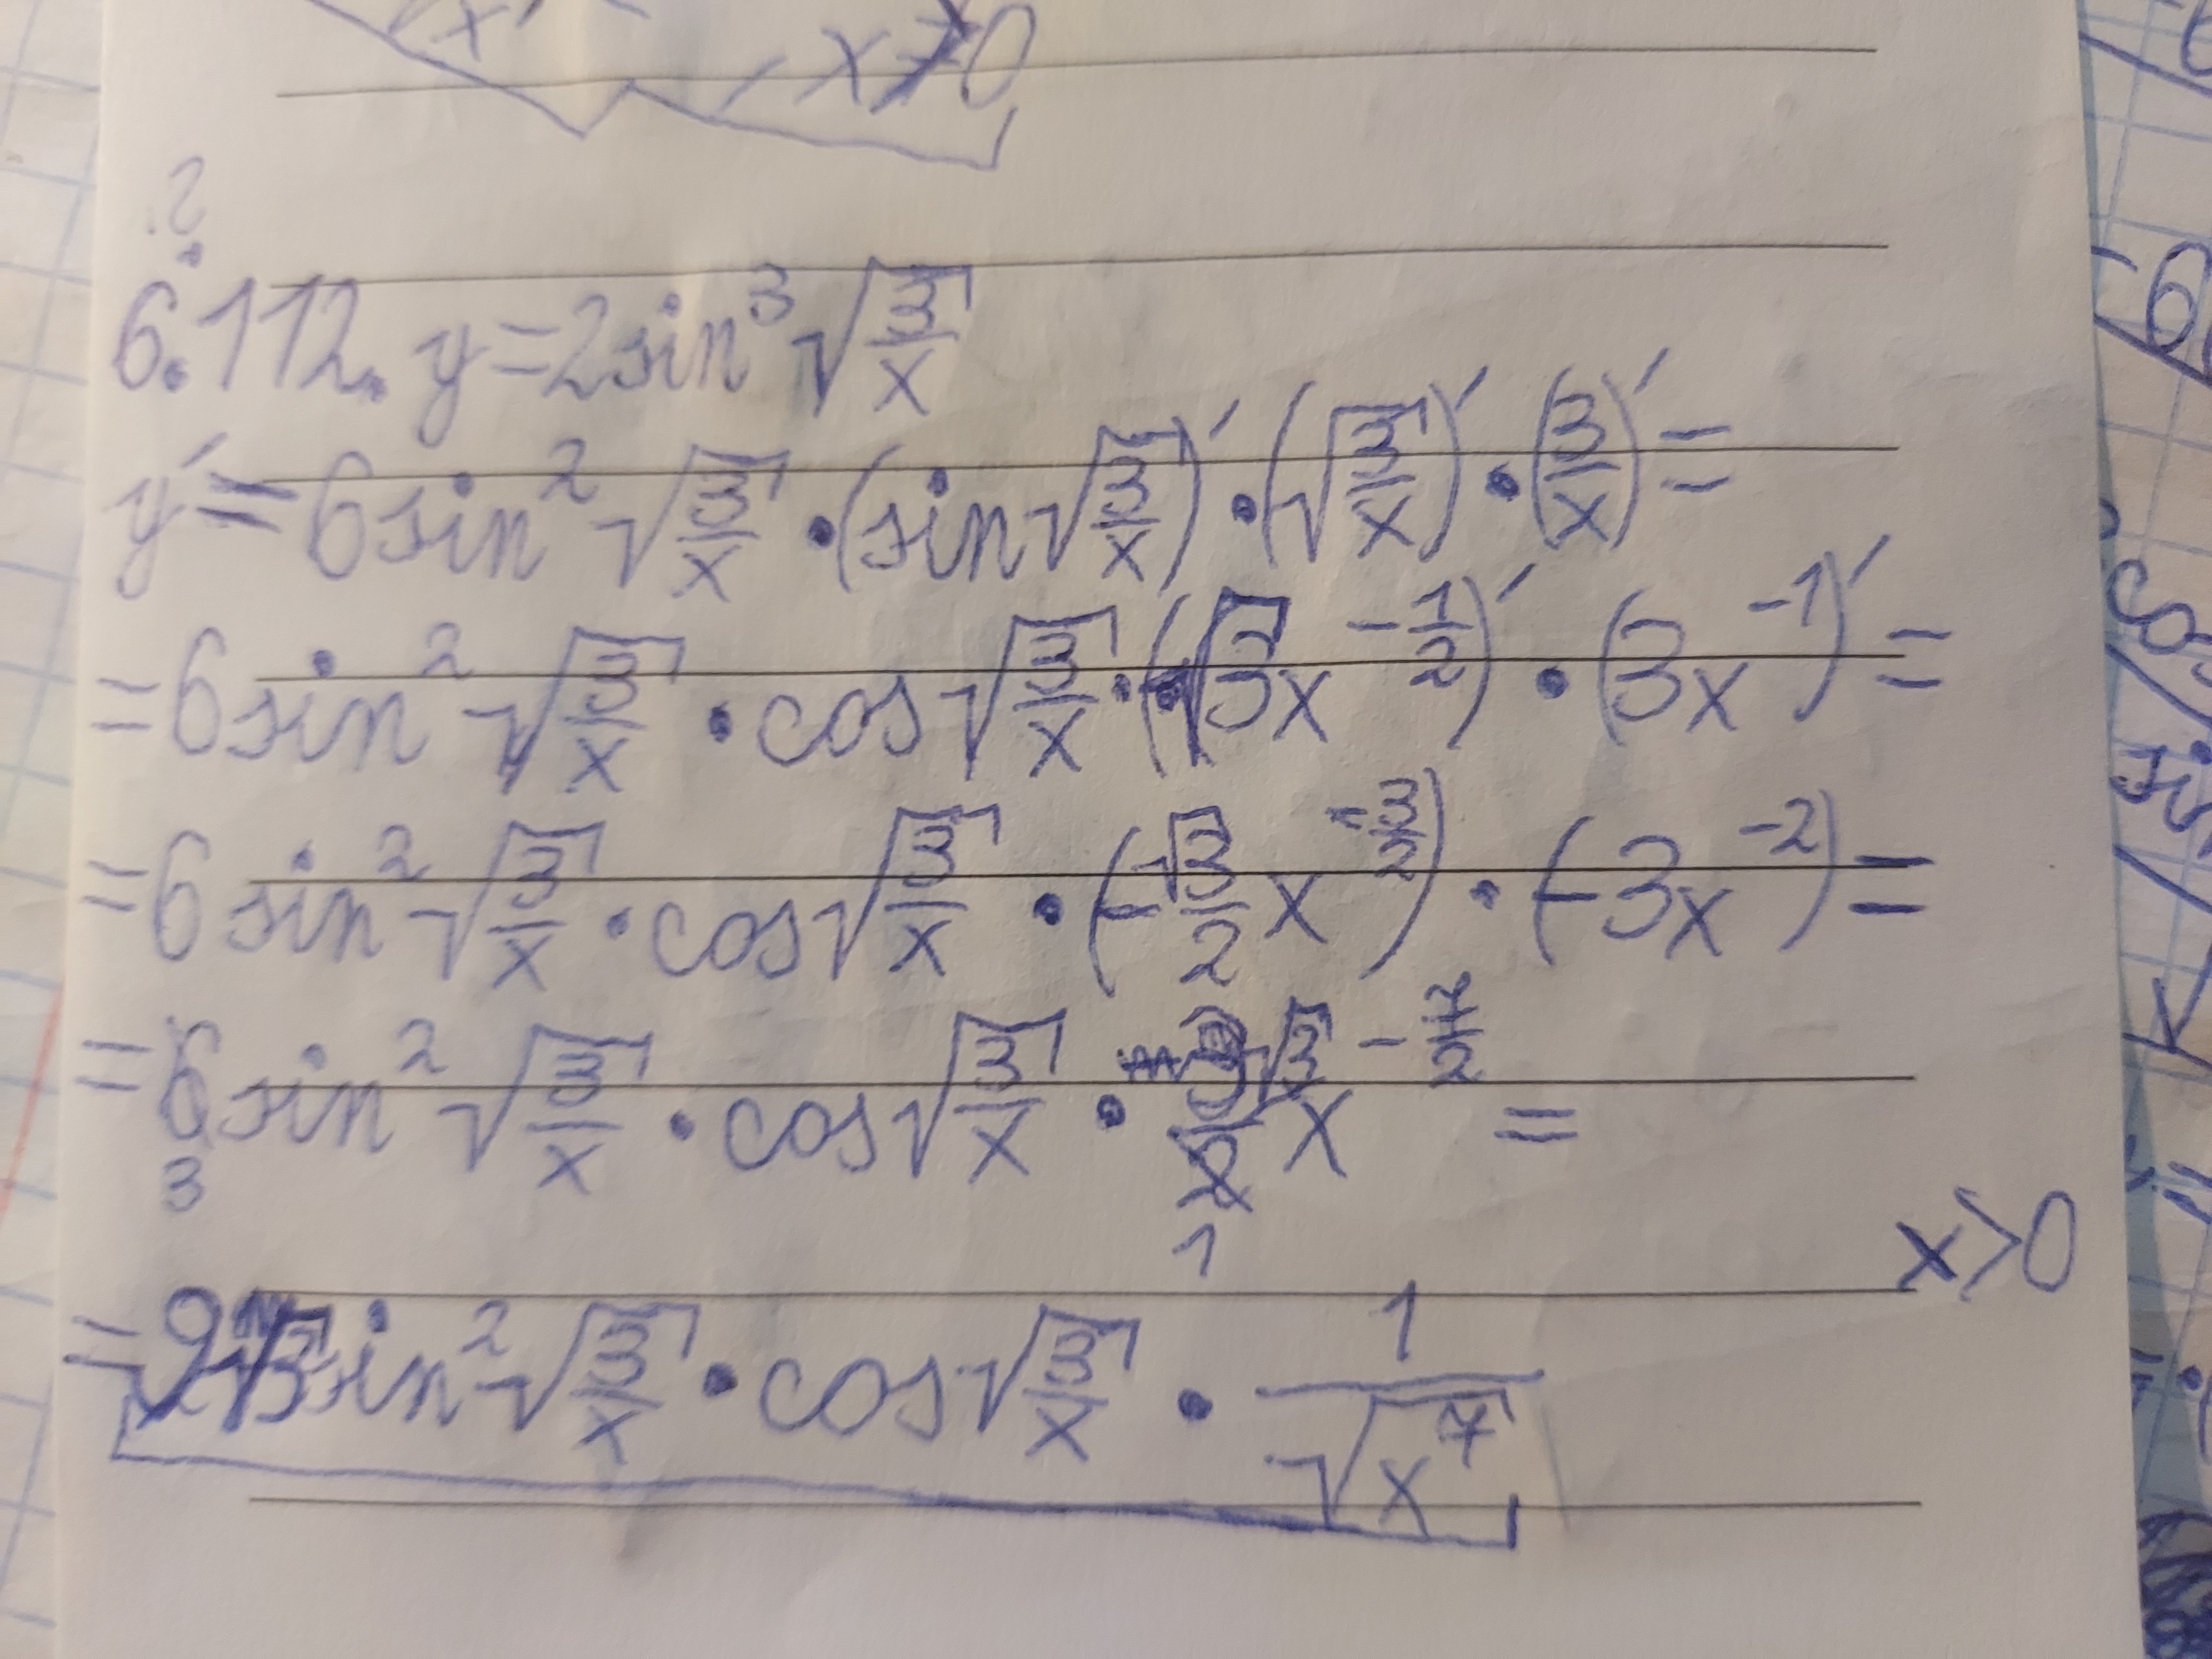 x≠0
?
6.112. y=2sin³√(3/x)
y′=6sin²√(3/x)·(sin√(3/x))′·(√(3/x))′·(3/x)′=
=6sin²√(3/x)·cos√(3/x)·(√3x^(-1/2))′·(3x^(-1))′=
=6sin²√(3/x)·cos√(3/x)·(-√3/2 x^(-3/2))·(-3x^(-2))=
=6sin²√(3/x)·cos√(3/x)·3√3/2 x^(-7/2)=
3 1
x>0
=9√3sin²√(3/x)·cos√(3/x)·1/√(x⁷)